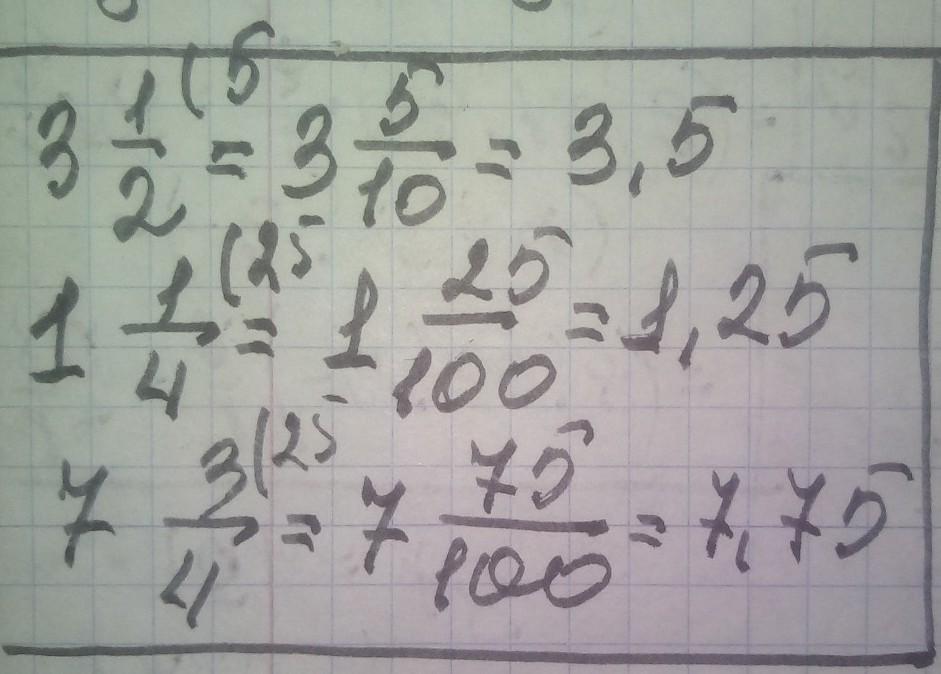 3 1/2 (5 = 3 5/10 = 3,5
1 1/4 (25 = 1 25/100 = 1,25
7 3/4 (25 = 7 75/100 = 7,75